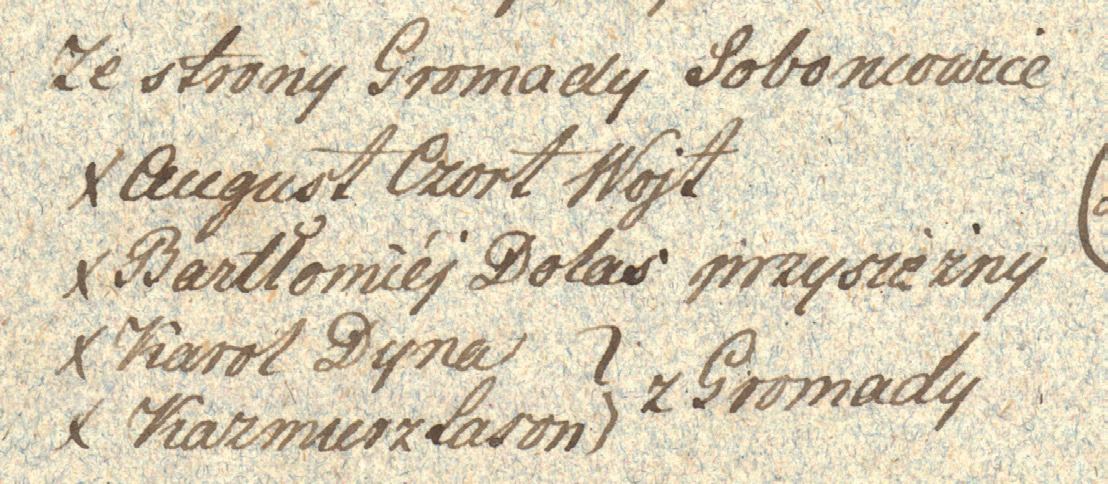 Ze strony Gromady Soboniowice
x August Czort Wojt
x Bartłomiéj Dolas przysiężny
x Karol Dyna
x Kazmierz Lason } z Gromady